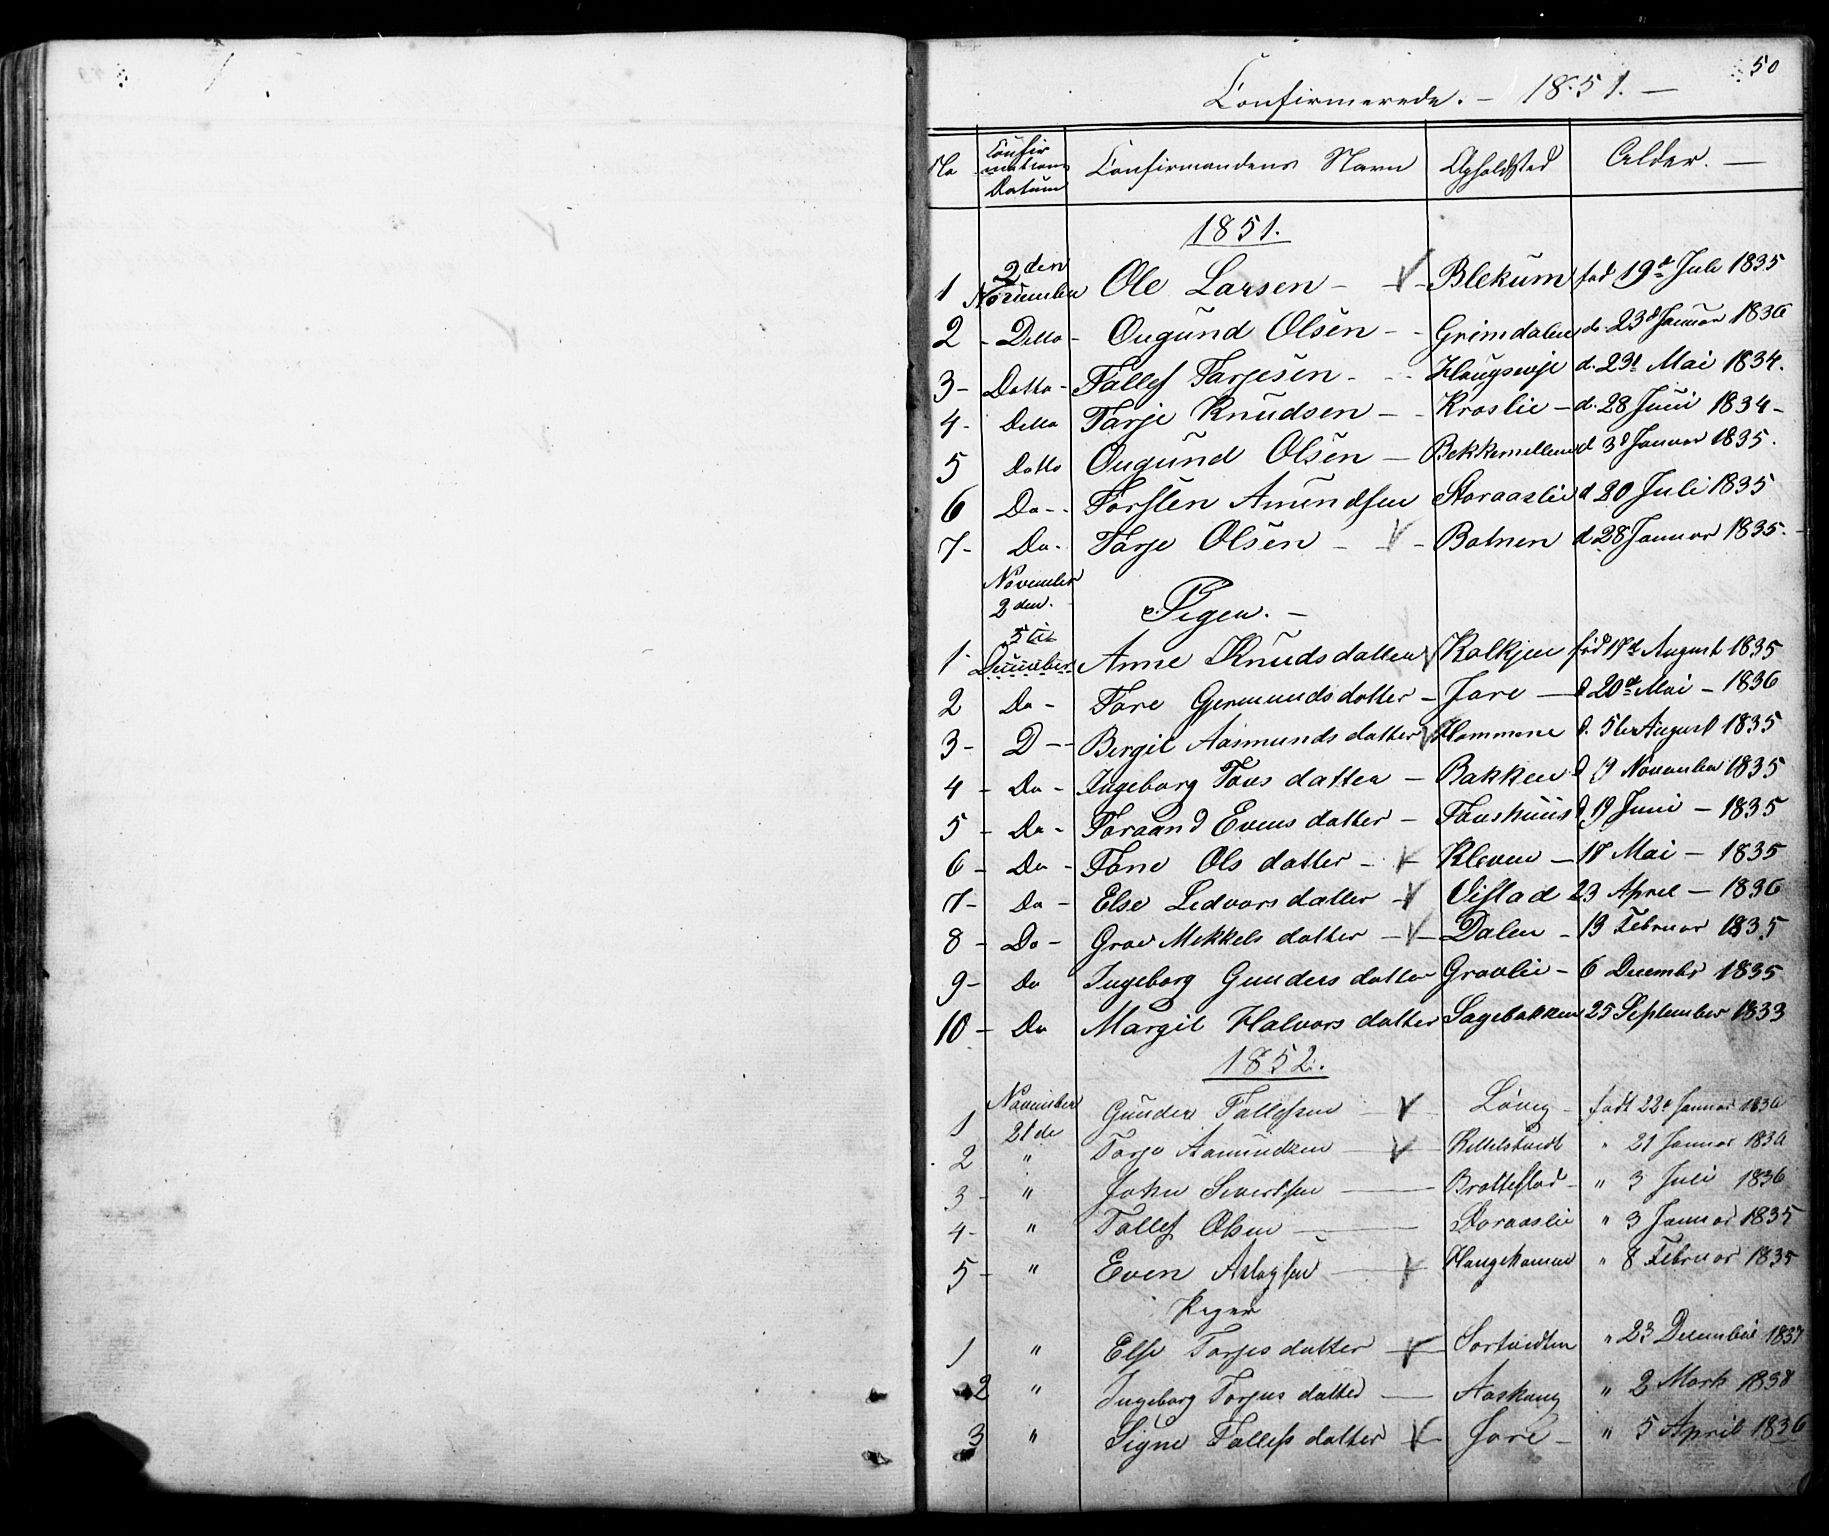 50
Confirmerede. - 1851. -
No Confirmations Datum Confirmandens Navn Opholdsted Alder. -
1851.
1 2den November Ole Larsen - - Blekum fød 19de Juli 1835
2 - Detto - Ougund Olsen - - Grimdalen d. 23d Januar 1836
3 - Detto - Tallef Tarjesen - - d. 23d Mai 1834.
4 - Detto Tarje Knudsen - - Kroslie - d. 28 Juni 1834 -
5 Detto Ougund Olsen - Bekkemellem d 3d Januar 1835.
6 Do - - Torsten Amundsen Storaaslie d 20 Juli 1835
7 - Do. Tarje Olsen - - - Botnen d 28 Januar 1835. -
November 2den. Pigen. -
1 - 5te December Anne Knudsdatter Kolkjen fød 18de August 1835
2 Do - Tore Gjermundsdatter - Jore - d 20de Mai - 1836
3 - D - - Bergit Aasmundsdatter Hommene d. 5te August 1835
4 - Do - Ingeborg Tovsdatter - Bakken d 9 November 1835
5 - Do - Toraand Evensdatter - Tovshuus d 19 Juni - 1835
6 - Do - Tone Olsdatter - - Kleven - 18 Mai - 1835
7 - Do - Else Ledvorsdatter - Vistad 23 April - 1836
8 - Do - Groe Mikkelsdatter - - Dalen - 13 Februar 1835
9 - Do Ingeborg Gundersdatter Grovlie - 6 Decembr 1835
10 - Do Margit Halvorsdatter Sagebakken 25 September 1833
1852.
1 November 21de Gunder Tallefsen - Løveg - født 22de Januar 1836
2 " Tarje Aamundsen - Kittelstvedt " 21 Januar 1836
3 - " John Sivertsen - Brottestad - " 3 Juli 1836
4 - " Tallef Olsen - Storaaslie " 3 Januar 1835
5 - " Even Aslagsen - Haugekammen " 8 Februar 1835
Piger
1 " Else Tarjesdatter - Sortvedten " 23 December 1837
2 " Ingeborg Torjusdatter - " 2 Marts 1838
3 " Signe Tallefsdatter - Jore - " 5 April 1836